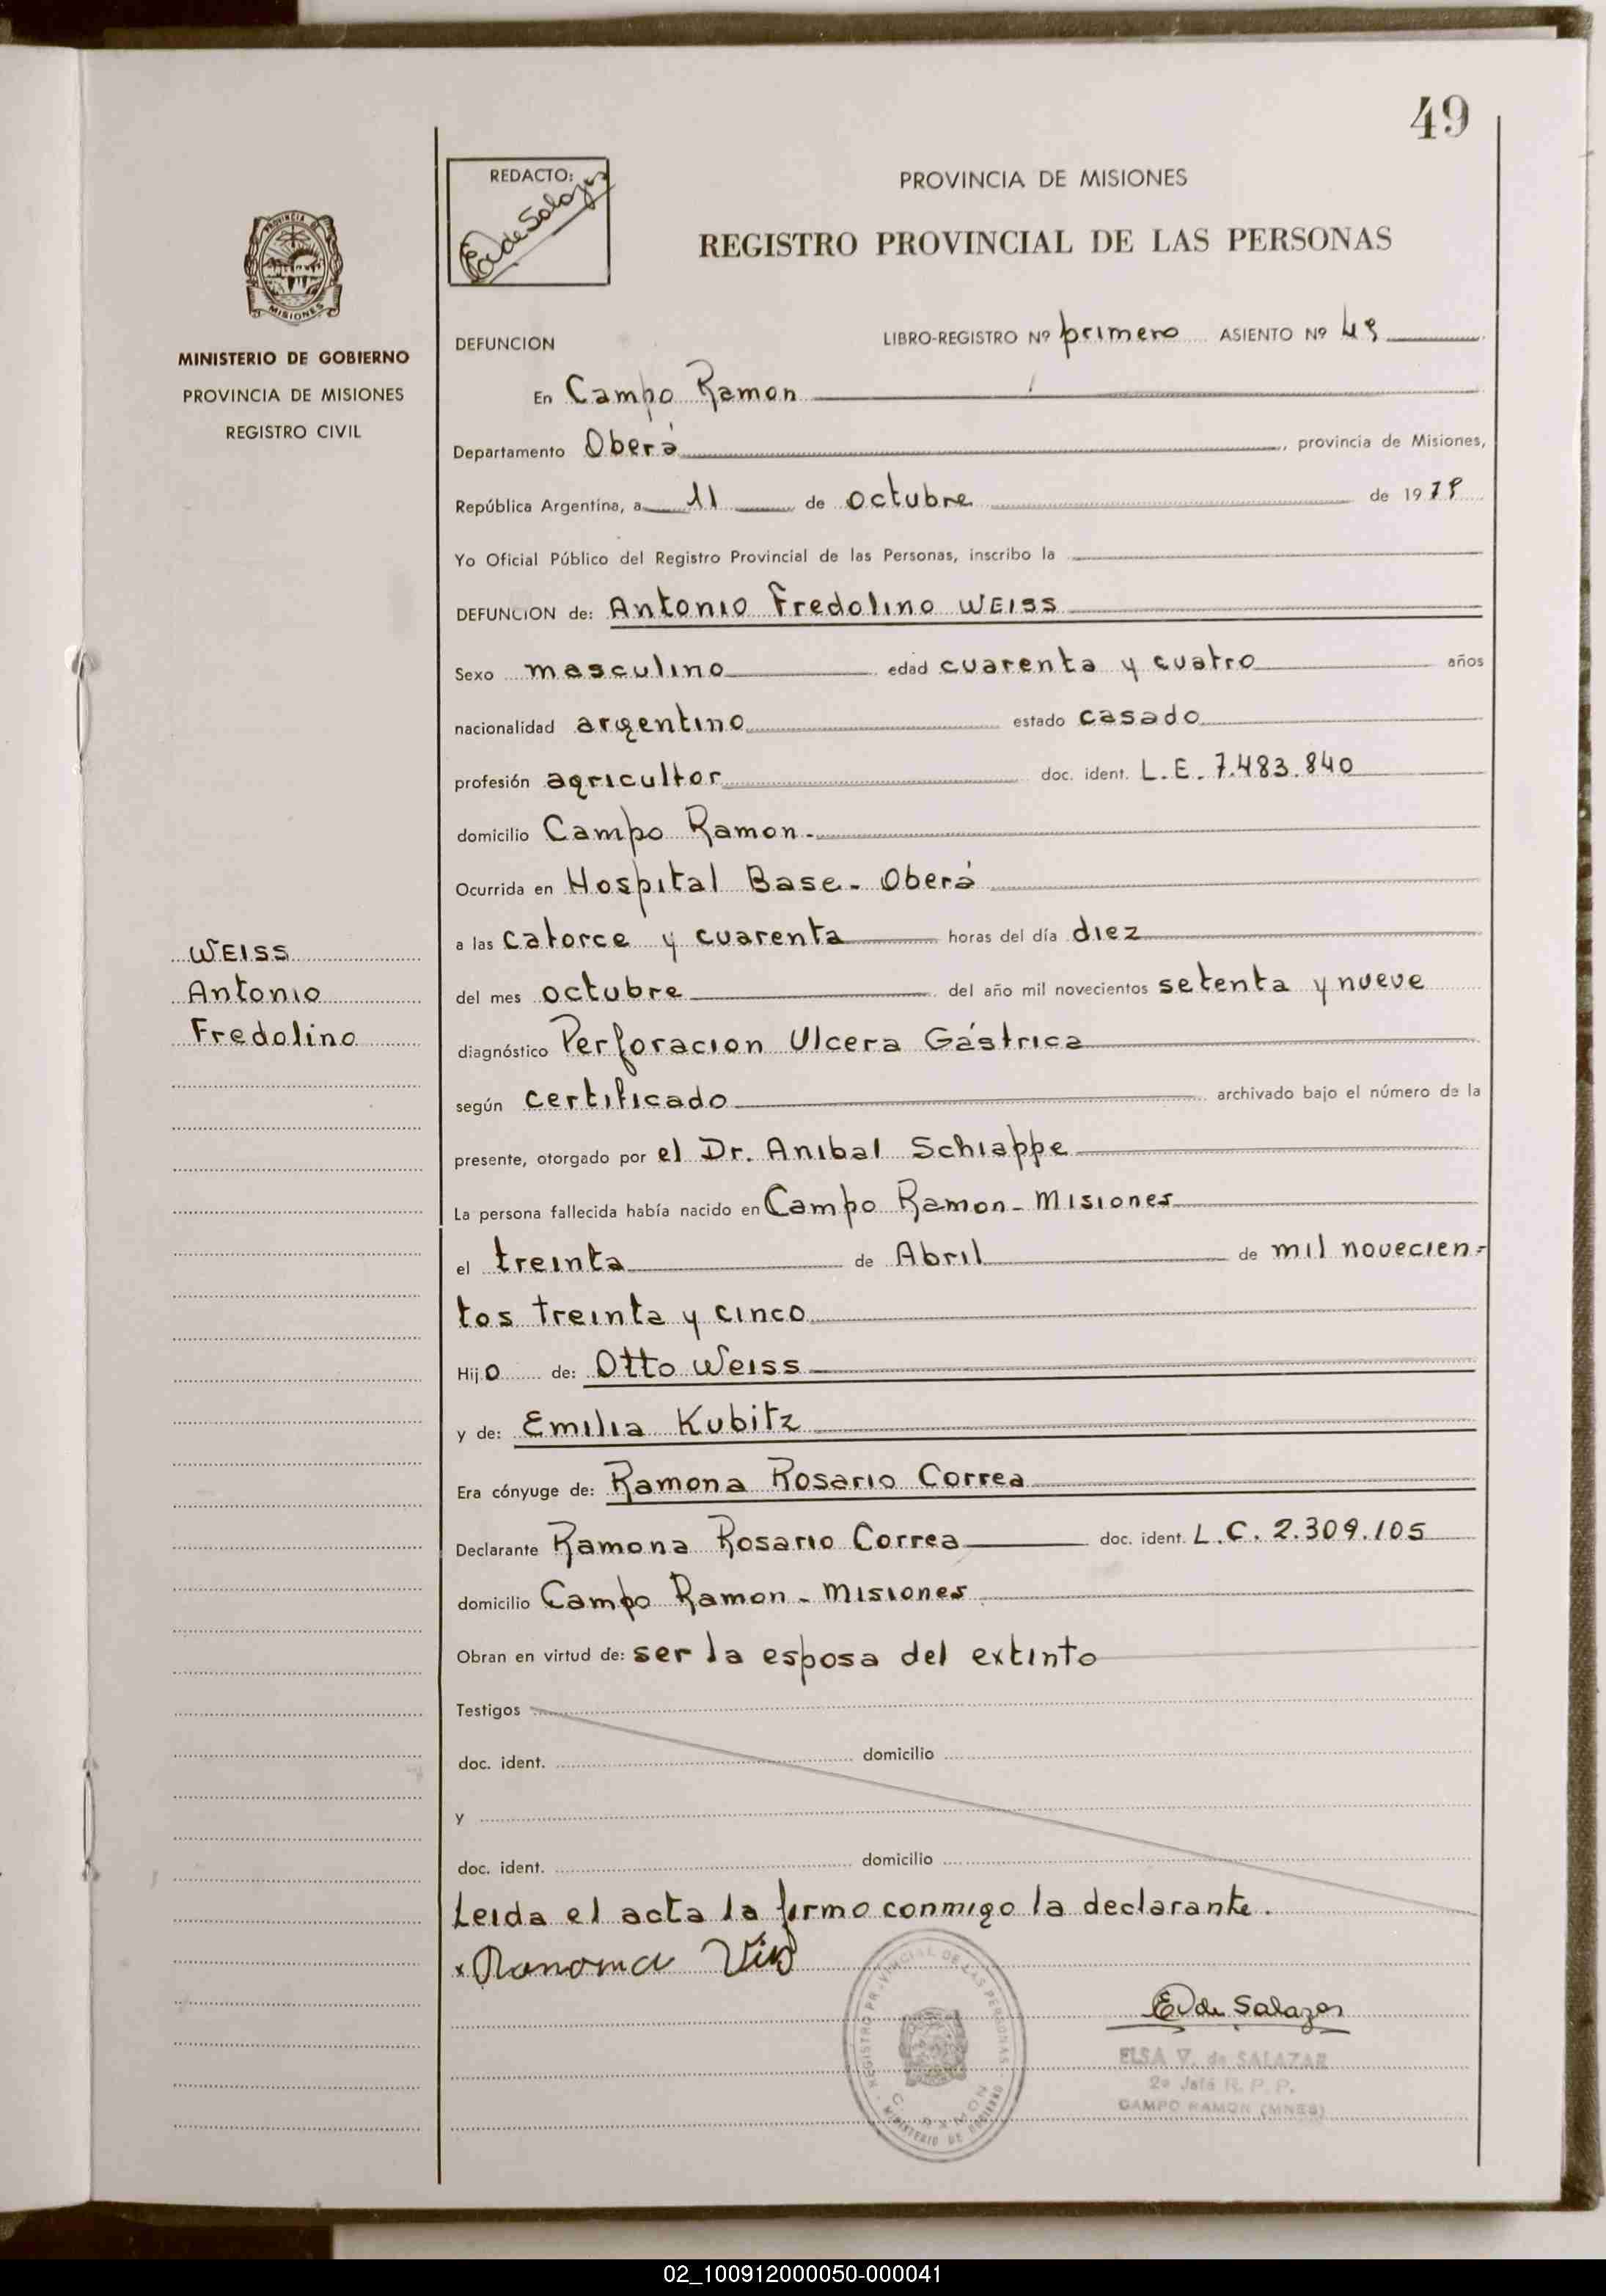 49
REDACTO:
E. V. de Salazar
PROVINCIA DE MISIONES
REGISTRO PROVINCIAL DE LAS PERSONAS
PROVINCIA
MISIONES
MINISTERIO DE GOBIERNO
PROVINCIA DE MISIONES
REGISTRO CIVIL
DEFUNCION LIBRO-REGISTRO Nº primero ASIENTO Nº 49
En Campo Ramon
Departamento Oberá, provincia de Misiones,
República Argentina, a 11 de octubre de 1979
Yo Oficial Público del Registro Provincial de las Personas, inscribo la
DEFUNCION de: Antonio Fredolino WEISS
Sexo masculino edad cuarenta y cuatro años
nacionalidad argentino estado casado
profesión agricultor doc. ident. L.E. 7.483.840
domicilio Campo Ramon.-
Ocurrida en Hospital Base- Oberá
a las catorce y cuarenta horas del día diez
del mes octubre del año mil novecientos setenta y nueve
diagnóstico Perforacion Ulcera Gástrica
según certificado archivado bajo el número de la
presente, otorgado por el Dr. Anibal Schiappe
La persona fallecida había nacido en Campo Ramon- Misiones
el treinta de Abril de mil novecien=
tos treinta y cinco
Hijo de: Otto Weiss
y de: Emilia Kubitz
Era cónyuge de: Ramona Rosario Correa
Declarante Ramona Rosario Correa doc. ident. L.C. 2.309.105
domicilio Campo Ramon - Misiones
Obran en virtud de: ser la esposa del extinto
Testigos
doc. ident. domicilio
y
doc. ident. domicilio
Leida el acta la firmo conmigo la declarante.
WEISS
Antonio
Fredolino
x Ramona
E V de Salazar
ELSA V. de SALAZAR
2º Jefe R. P. P.
CAMPO RAMON (MNES)
REGISTRO PROVINCIAL DE LAS PERSONAS
C. RAMON
MINISTERIO DE GOBIERNO
02_100912000050-000041